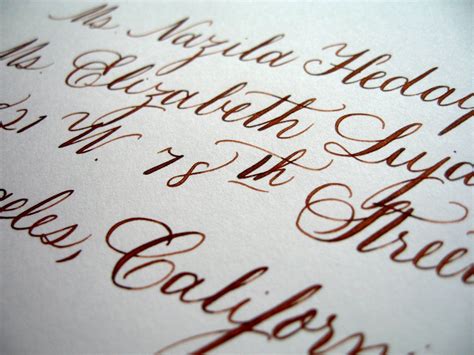 Ms. Nazila Heday
Ms. Elizabeth Luja
21 W. 78th Street
geles, California